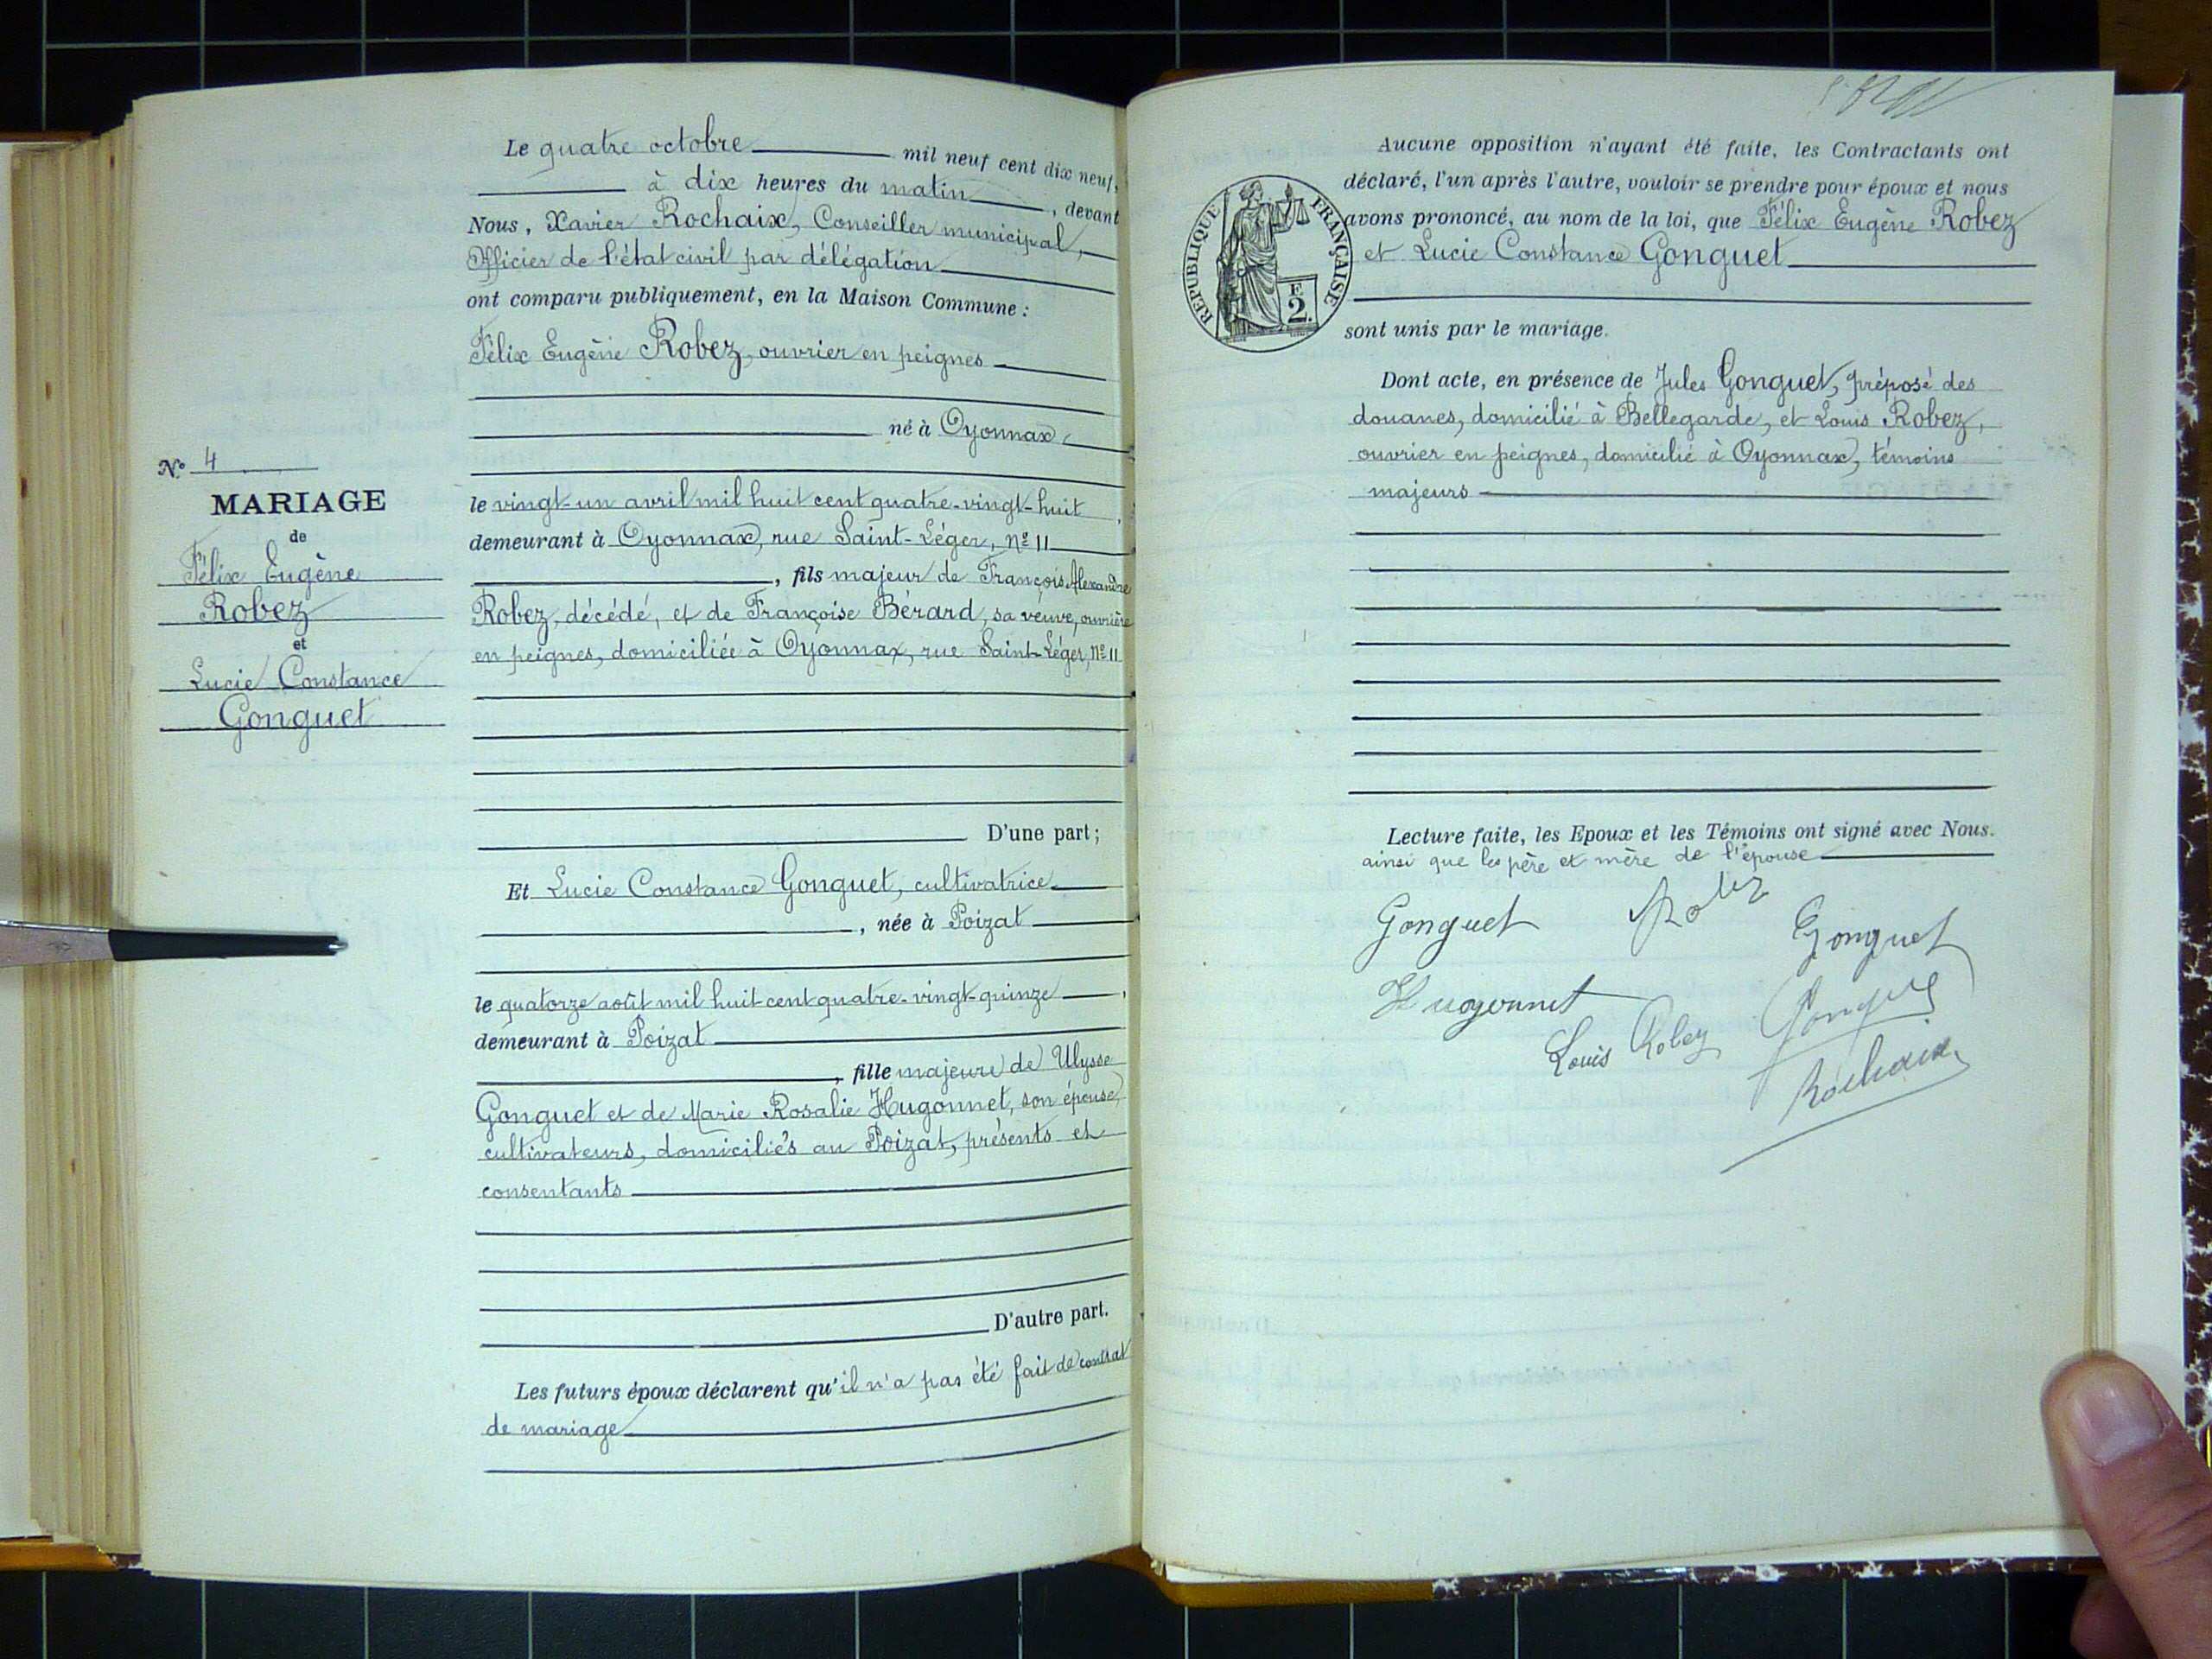 N.º 4
MARIAGE
de
Félix Eugène
Robez
et
Lucie Constance
Gonguet
Le quatre octobre mil neuf cent dix neuf,
à dix heures du matin, devant
Nous, Xavier Rochaix, Conseiller municipal,
Officier de l'état civil par délégation
ont comparu publiquement, en la Maison Commune :
Félix Eugène Robez, ouvrier en peignes
né à Oyonnax
le vingt-un avril mil huit cent quatre-vingt-huit,
demeurant à Oyonnax, rue Saint-Léger, Nº 11
, fils majeur de François Alexandre
Robez, décédé, et de Françoise Bérard, sa veuve, ouvrière
en peignes, domiciliée à Oyonnax, rue Saint-Léger, Nº 11
D'une part ;
Et Lucie Constance Gonguet, cultivatrice
, née à Poizat
le quatorze août mil huit cent quatre-vingt-quinze,
demeurant à Poizat
, fille majeure de Ulysse
Gonguet et de Marie Rosalie Hugonnet, son épouse,
cultivateurs, domiciliés au Poizat, présents et
consentants
D'autre part.
Les futurs époux déclarent qu'il n'a pas été fait de contrat
de mariage
RÉPUBLIQUE FRANÇAISE
F
2.
Aucune opposition n'ayant été faite, les Contractants ont
déclaré, l'un après l'autre, vouloir se prendre pour époux et nous
avons prononcé, au nom de la loi, que Félix Eugène Robez
et Lucie Constance Gonguet
sont unis par le mariage.
Dont acte, en présence de Jules Gonguet, préposé des
douanes, domicilié à Bellegarde, et Louis Robez,
ouvrier en peignes, domicilié à Oyonnax, témoins
majeurs
Lecture faite, les Epoux et les Témoins ont signé avec Nous.
ainsi que les père et mère de l'épouse
Gonguet Robez Gonguet
Hugonnet
Louis Robez Gonguet
Rochaix